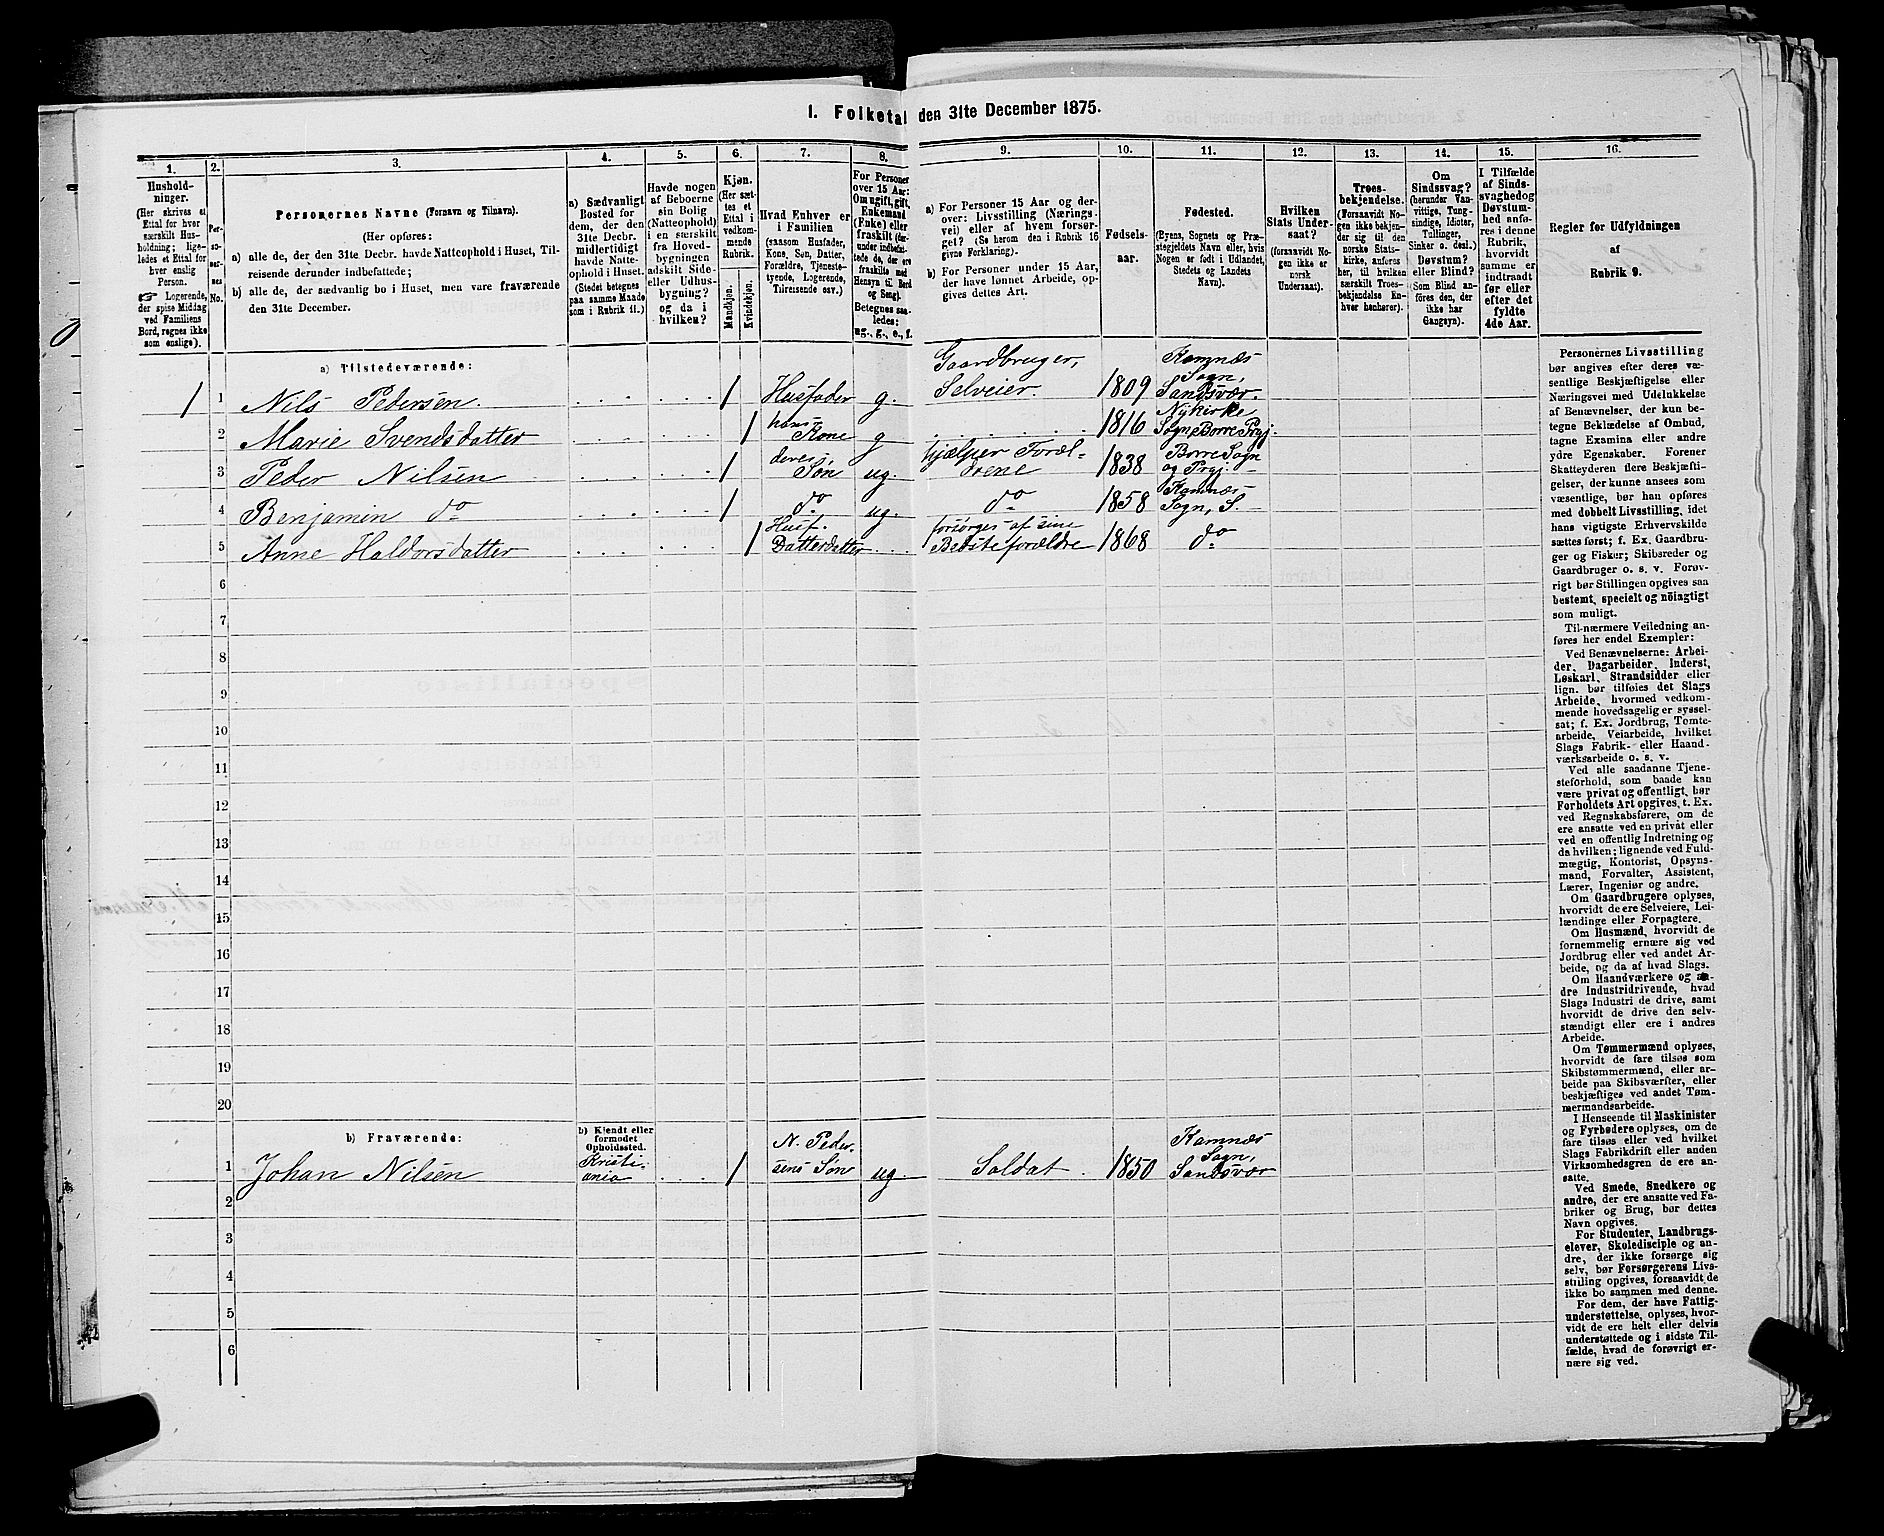 1. Folketal den 31te December 1875.
1.
2.
3.
4.
5.
6.
7.
8.
9.
10.
11.
12.
13.
14.
15.
16.
Hushold-
ninger.
(Her skrives et
Ettal for hver
særskilt Hus-
holdning; lige-
ledes et Ettal for
hver enslig
Person.
Logerende,
der spise Middag
ved Familiens
Bord, regnes ikke
som enslige).
Personernes Navne (Fornavn og Tilnavn).
(Her opføres:
a) alle de, der den 31te Decbr. havde Natteophold i Huset, Til-
reisende derunder indbefattede;
b) alle de, der sædvanlig bo i Huset, men vare fraværende
den 31te December.
a) Sædvanligt
Bosted for
dem, der den
31te Decbr.
midlertidigt
havde Natte-
ophold i Huset.
(Stedet betegnes
paa samme Maade
som i Rubrik 11.)
Havde nogen
af Beboerne
sin Bolig
(Natteophold)
i en særskilt
fra Hoved-
bygningen
adskilt Side-
eller Udhus-
bygning?
og da i
hvilken?
Kjøn.
(Her sæt-
tes et
Ettal i
vedkom-
mende
Rubrik.
Mandkjøn.
Kvindekjøn.
Hvad Enhver er
i Familien
(saasom Husfader,
Kone, Søn, Datter,
Forældre, Tjeneste-
tyende, Logerende,
Tilreisende osv.)
For Personer
over 15 Aar:
Om ugift, gift,
Enkemand
(Enke) eller
fraskilt
Betegnes saa-
ledes:
ug., g., e., f.
a) For Personer 15 Aar og der-
over: Livsstilling (Nærings-
vei) eller af hvem forsør-
get? (Se herom den i Rubrik 16
givne Forklaring).
b) For Personer under 15 Aar,
der have lønnet Arbeide, op-
gives dettes Art.
Fødsels-
aar.
Fødested.
(Byens, Sognets og Præ-
stegjeldets Navn eller, hvis
Nogen er født i Udlandet,
Stedets og Landets
Navn).
Hvilken
Stats Under-
saat?
(foraavidt No-
gen ikke er
norsk
Undersaat).
Troes-
bekjendelse.
(Forsaavidt No-
gen ikke bekjen-
der sig til den
norske Stats-
kirke, anføres
her, til hvilken
særskilt Troes-
bekjendelse En-
hver henhører).
Om
Sindssvag?
(herunder Van-
vittige, Tung-
sindige, Idioter,
Tullinger,
Sinker o. desl.)
Døvstum?
eller Blind?
(Som Blind an-
føres den, der
ikke har
Gangsyn).
I Tilfælde
af Sinds-
svaghed og
Døvstum-
hed anfø-
res i denne
Rubrik,
hvorvidt
samme er
indtraadt
før eller
efter det
fyldte
4de Aar.
Regler for Udfyldningen
af
Rubrik 9.
a) Tilstedeværende:
1 1 Nils Pedersen. 1 Husfader g. Gaardbruger, Selveier. 1809 Komnæs Sogn, Sandsvær.
2 Marie Svendsdatter 1 hans Kone g 1816 Nykirke Sogn, Borre Prgj.
3 Peder Nilsen 1 deres Søn ug. hjælper Foræl-drene 1838 Borre Sogn og Prgj.
4 Benjamin do 1 do ug. do 1858 Komnæs Sogn, S.
5 Anne Haldorsdatter 1 Husf. Datterdatter forsørges af sine Bedsteforældre 1868 do
6
7
8
9
10
11
12
13
14
15
16
17
18
19
20
b) Fraværende:
b) Kjendt eller
formodet
Opholdssted.
1 Johan Nilsen Kristi-ania 1 N. Peder-sens Søn ug. Soldat. 1850 Komnæs Sogn, Sandsvær
2
3
4
5
6
Personernes Livsstilling
bør angives efter deres væ-
sentlige Beskjæftigelse eller
Næringsvei med Udelukkelse
af Benævnelser, der kun be-
tegne Beklædelse af Ombud,
tagne Examina eller andre
ydre Egenskaber. Forener
Skatteyderen flere Beskjæfti-
gelser, der kunne ansees som
væsentlige, bør han opføres
med dobbelt Livsstilling, idet
hans vigtigste Erhvervskilde
sættes først; f. Ex. Gaardbru-
ger og Fisker; Skibsreder og
Gaardbruger o. s. v. Forøv-
rigt bør Stillingen opgives saa
bestemt, specielt og nöiagtigt
som muligt.
Til nærmere Veiledning an-
føres her endel Exempler:
Ved Benævnelserne: Arbei-
der, Dagarbeider, Inderst,
Løskarl, Strandsidder eller
lign. bør tilføies det Slags
Arbeide, hvormed vedkom-
mende hovedsagelig er syssel-
sat; f. Ex. Jordbrug, Tømte-
arbeide, Veiarbeide, hvilket
Slags Fabrik- eller Haand-
værksarbeide o. s. v.
Ved alle saadanne Tjene-
steforhold, som baade kan
være privat og offentligt, bør
Forholdets Art opgives, t. Ex.
ved Regnskabsførere, om de
ere ansatte ved en privat eller
ved en offentlig Indretning og
da hvilken; lignende ved Fuld-
mægtig, Kontorist, Opsyns-
mand, Forvalter, Assistent,
Lærer, Ingeniør og andre.
Om Gaardbrugere oplyses,
hvorvidt de ere Selveiere, Lei-
lændinge eller Forpagtere.
Om Husmænd, hvorvidt de
fornemmelig ernære sig ved
Jordbrug eller ved andet Ar-
beide, og da af hvad Slags.
Om Haandværkere og an-
dre Industridrivende, hvad
Slags Industri de drive, samt
hvorvidt de drive den selv-
stændigt eller ere i andres
Arbeide.
Om Tømmermænd oplyses,
hvorvidt de fare tilsøs som
Skibstømmermænd, eller ar-
beide paa Skibsværfter, eller
beskjæftiges ved andet Tøm-
mermandsarbeide.
I Henseende til Maskinister
og Fyrbødere oplyses, om de
fare tilsøs eller ved hvilket
Slags Fabrikdrift eller anden
Virksomhedsgren de ere an-
satte.
Ved Smede, Snedkere og
andre, der ere ansatte ved Fa-
briker og Brug, bør dettes
Navn opgives.
For Studenter, Landbrugs-
elever, Skoledisciple og an-
dre, der ikke forsørge sig
selv, bør Forsørgerens Livs-
stilling opgives, forsaavidt de
ikke bo sammen med denne.
For dem, der have Fattig-
understøttelse, oplyses, hvor-
vidt de ere helt eller delvis
understøttede og i sidste Til-
fælde, hvad de forøvrigt er-
nære sig ved.